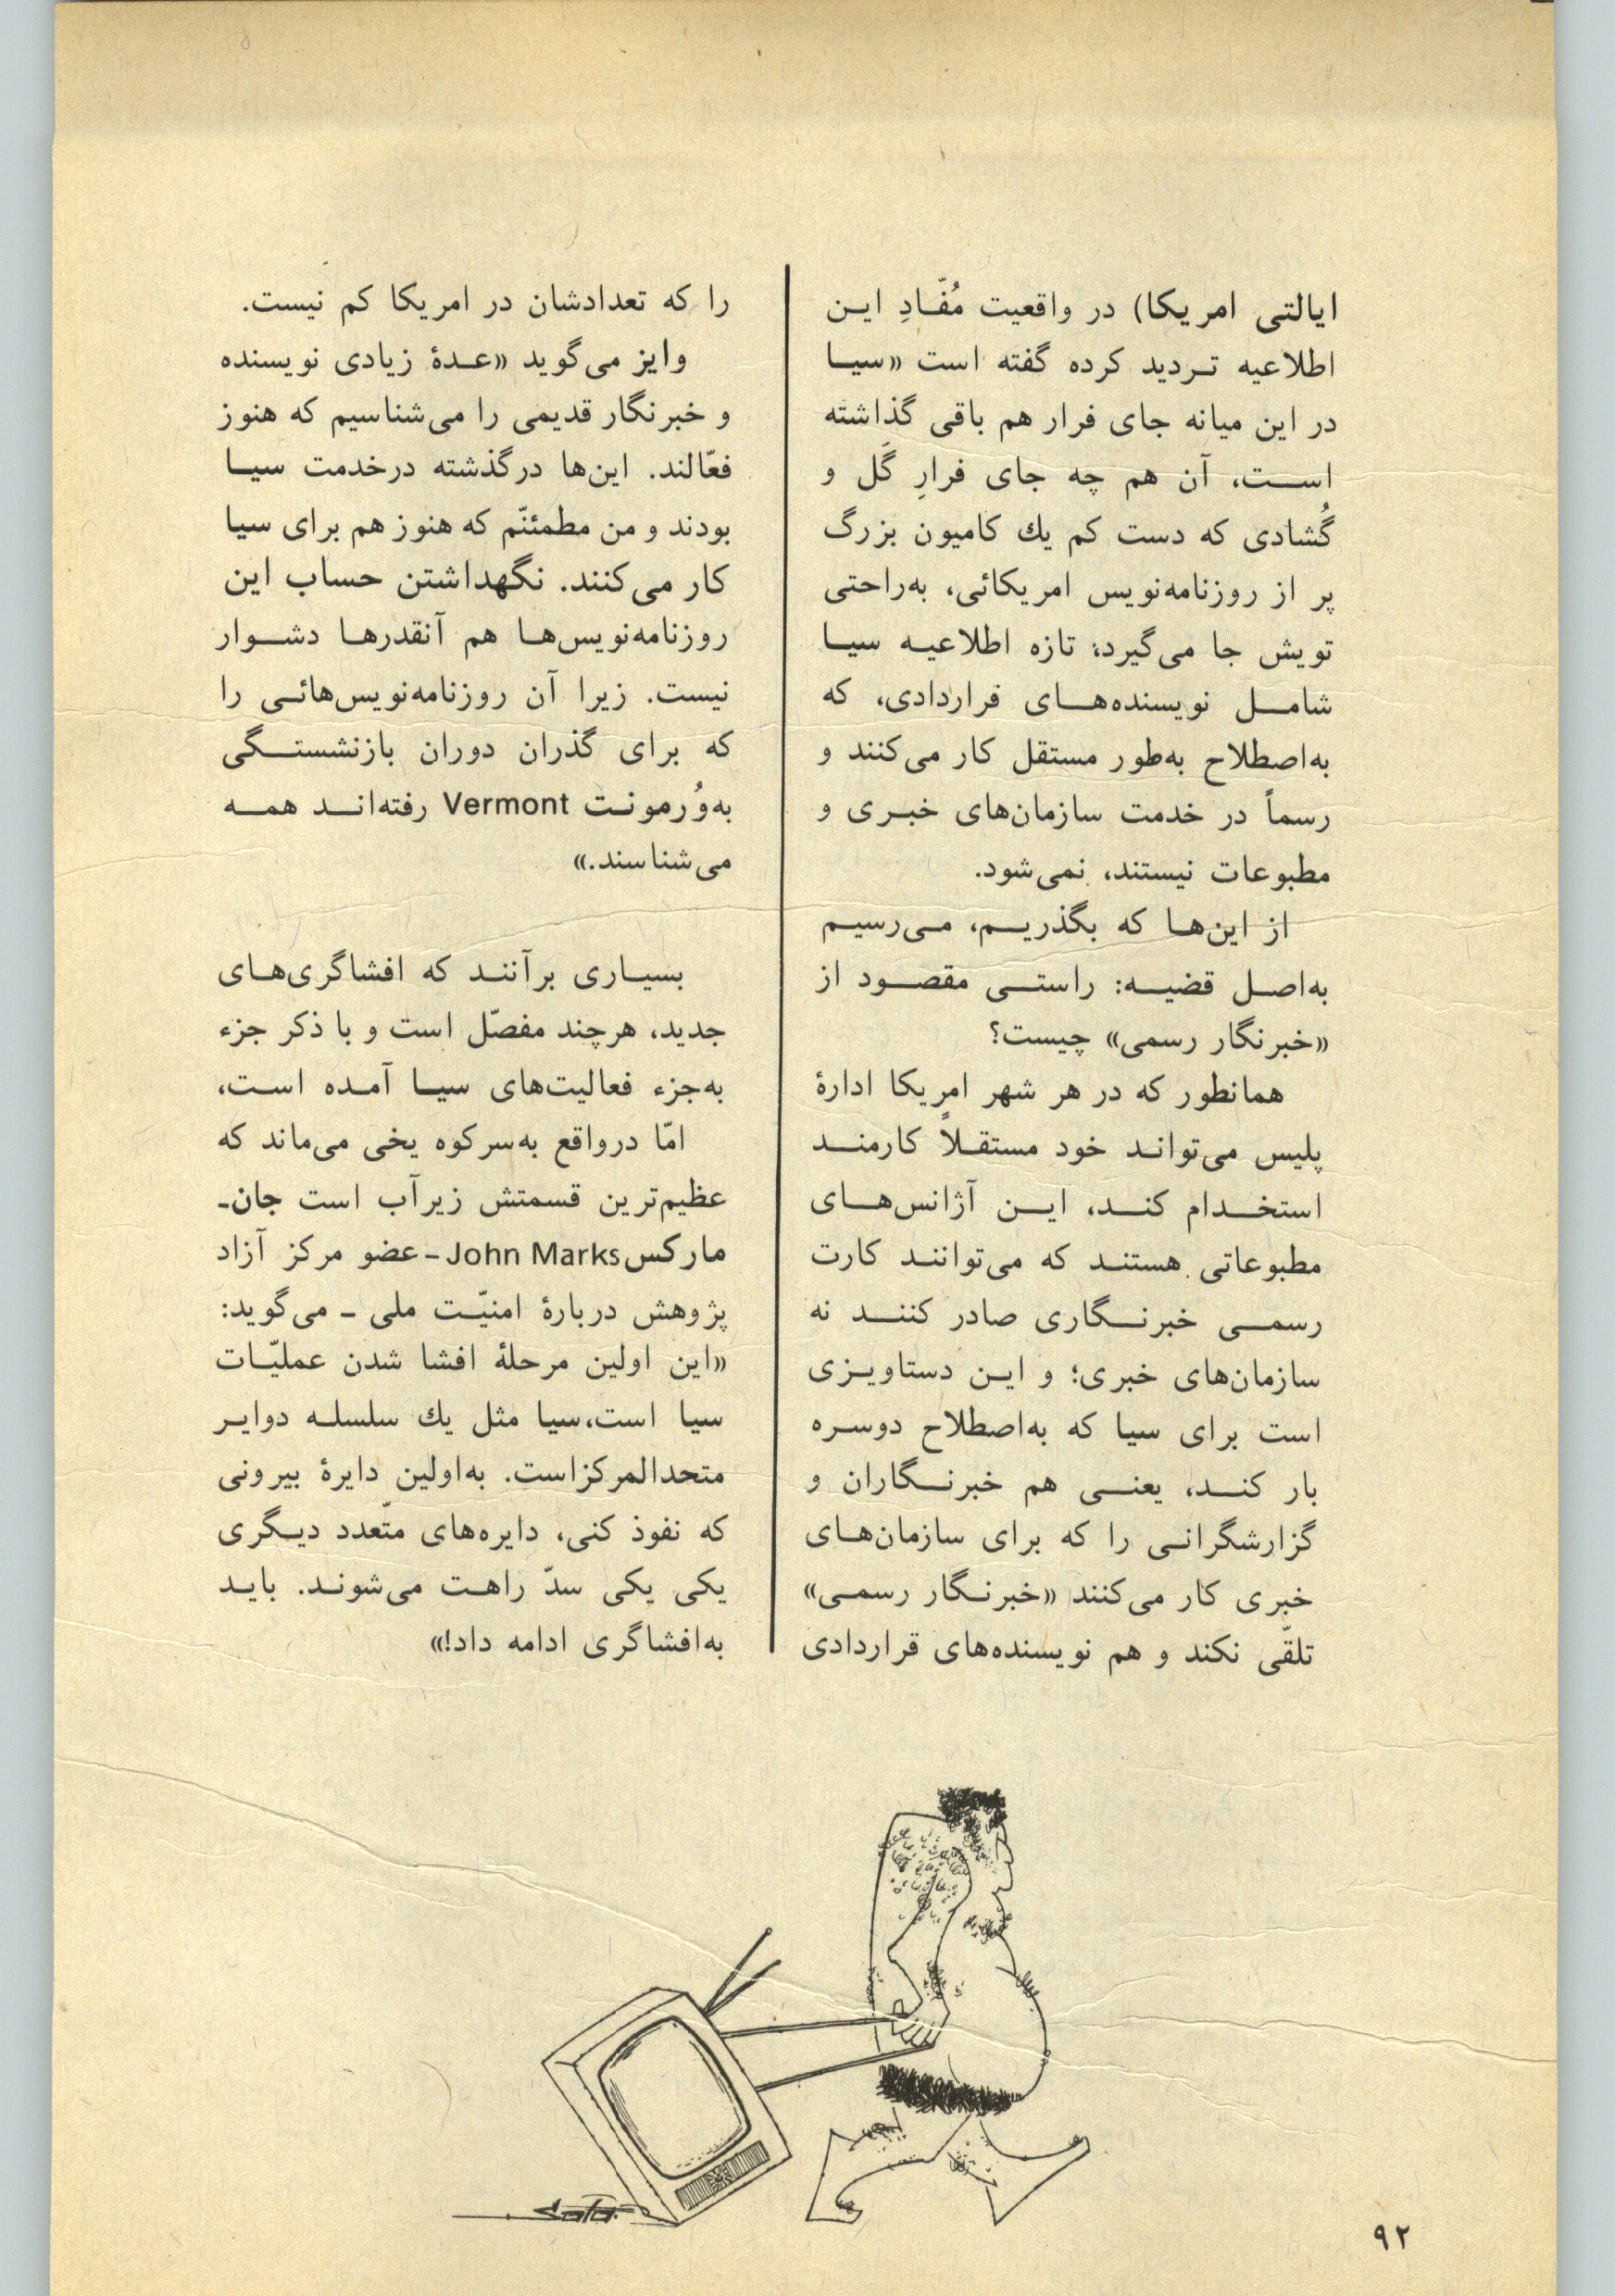 ایالتی امریکا) در واقعیت مُفّادِ این
اطلاعیه تردید کرده گفته است «سیا
در این میانه جای فرار هم باقی گذاشته
است، آن هم چه جای فرارِ گَل و
گُشادی که دست کم یك کامیون بزرگ
پر از روزنامه‌نویس امریکائی، به‌راحتی
تویش جا می‌گیرد؛ تازه اطلاعیه سیا
شامل نویسنده‌های قراردادی، که
به‌اصطلاح به‌طور مستقل کار می‌کنند و
رسماً در خدمت سازمان‌های خبری و
مطبوعات نیستند، نمی‌شود.
از این‌ها که بگذریم، می‌رسیم
به‌اصل قضیه: راستی مقصود از
«خبرنگار رسمی» چیست؟
همانطور که در هر شهر امریکا ادارهٔ
پلیس می‌تواند خود مستقلاً کارمند
استخدام کند، این آژانس‌های
مطبوعاتی هستند که می‌توانند کارت
رسمی خبرنگاری صادر کنند نه
سازمان‌های خبری؛ و این دستاویزی
است برای سیا که به‌اصطلاح دوسره
بار کند، یعنی هم خبرنگاران و
گزارشگرانی را که برای سازمان‌های
خبری کار می‌کنند «خبرنگار رسمی»
تلقّی نکند و هم نویسنده‌های قراردادی
را که تعدادشان در امریکا کم نیست.
وایز می‌گوید «عدهٔ زیادی نویسنده
و خبرنگار قدیمی را می‌شناسیم که هنوز
فعّالند. این‌ها درگذشته درخدمت سیا
بودند و من مطمئنّم که هنوز هم برای سیا
کار می‌کنند. نگهداشتن حساب این
روزنامه‌نویس‌ها هم آنقدرها دشوار
نیست. زیرا آن روزنامه‌نویس‌هائی را
که برای گذران دوران بازنشستگی
به‌وُرمونت Vermont رفته‌اند همه
می‌شناسند.»
بسیاری برآنند که افشاگری‌های
جدید، هرچند مفصّل است و با ذکر جزء
به‌جزء فعالیت‌های سیا آمده است،
امّا درواقع به‌سرکوه یخی می‌ماند که
عظیم‌ترین قسمتش زیرآب است جان-
مارکس John Marks - عضو مرکز آزاد
پژوهش دربارهٔ امنیّت ملی - می‌گوید:
«این اولین مرحلهٔ افشا شدن عملیّات
سیا است، سیا مثل یك سلسله دوایر
متحدالمرکزاست. به‌اولین دایرهٔ بیرونی
که نفوذ کنی، دایره‌های متّعدد دیگری
یکی یکی سدّ راهت می‌شوند. باید
به‌افشاگری ادامه داد!»
۹۲